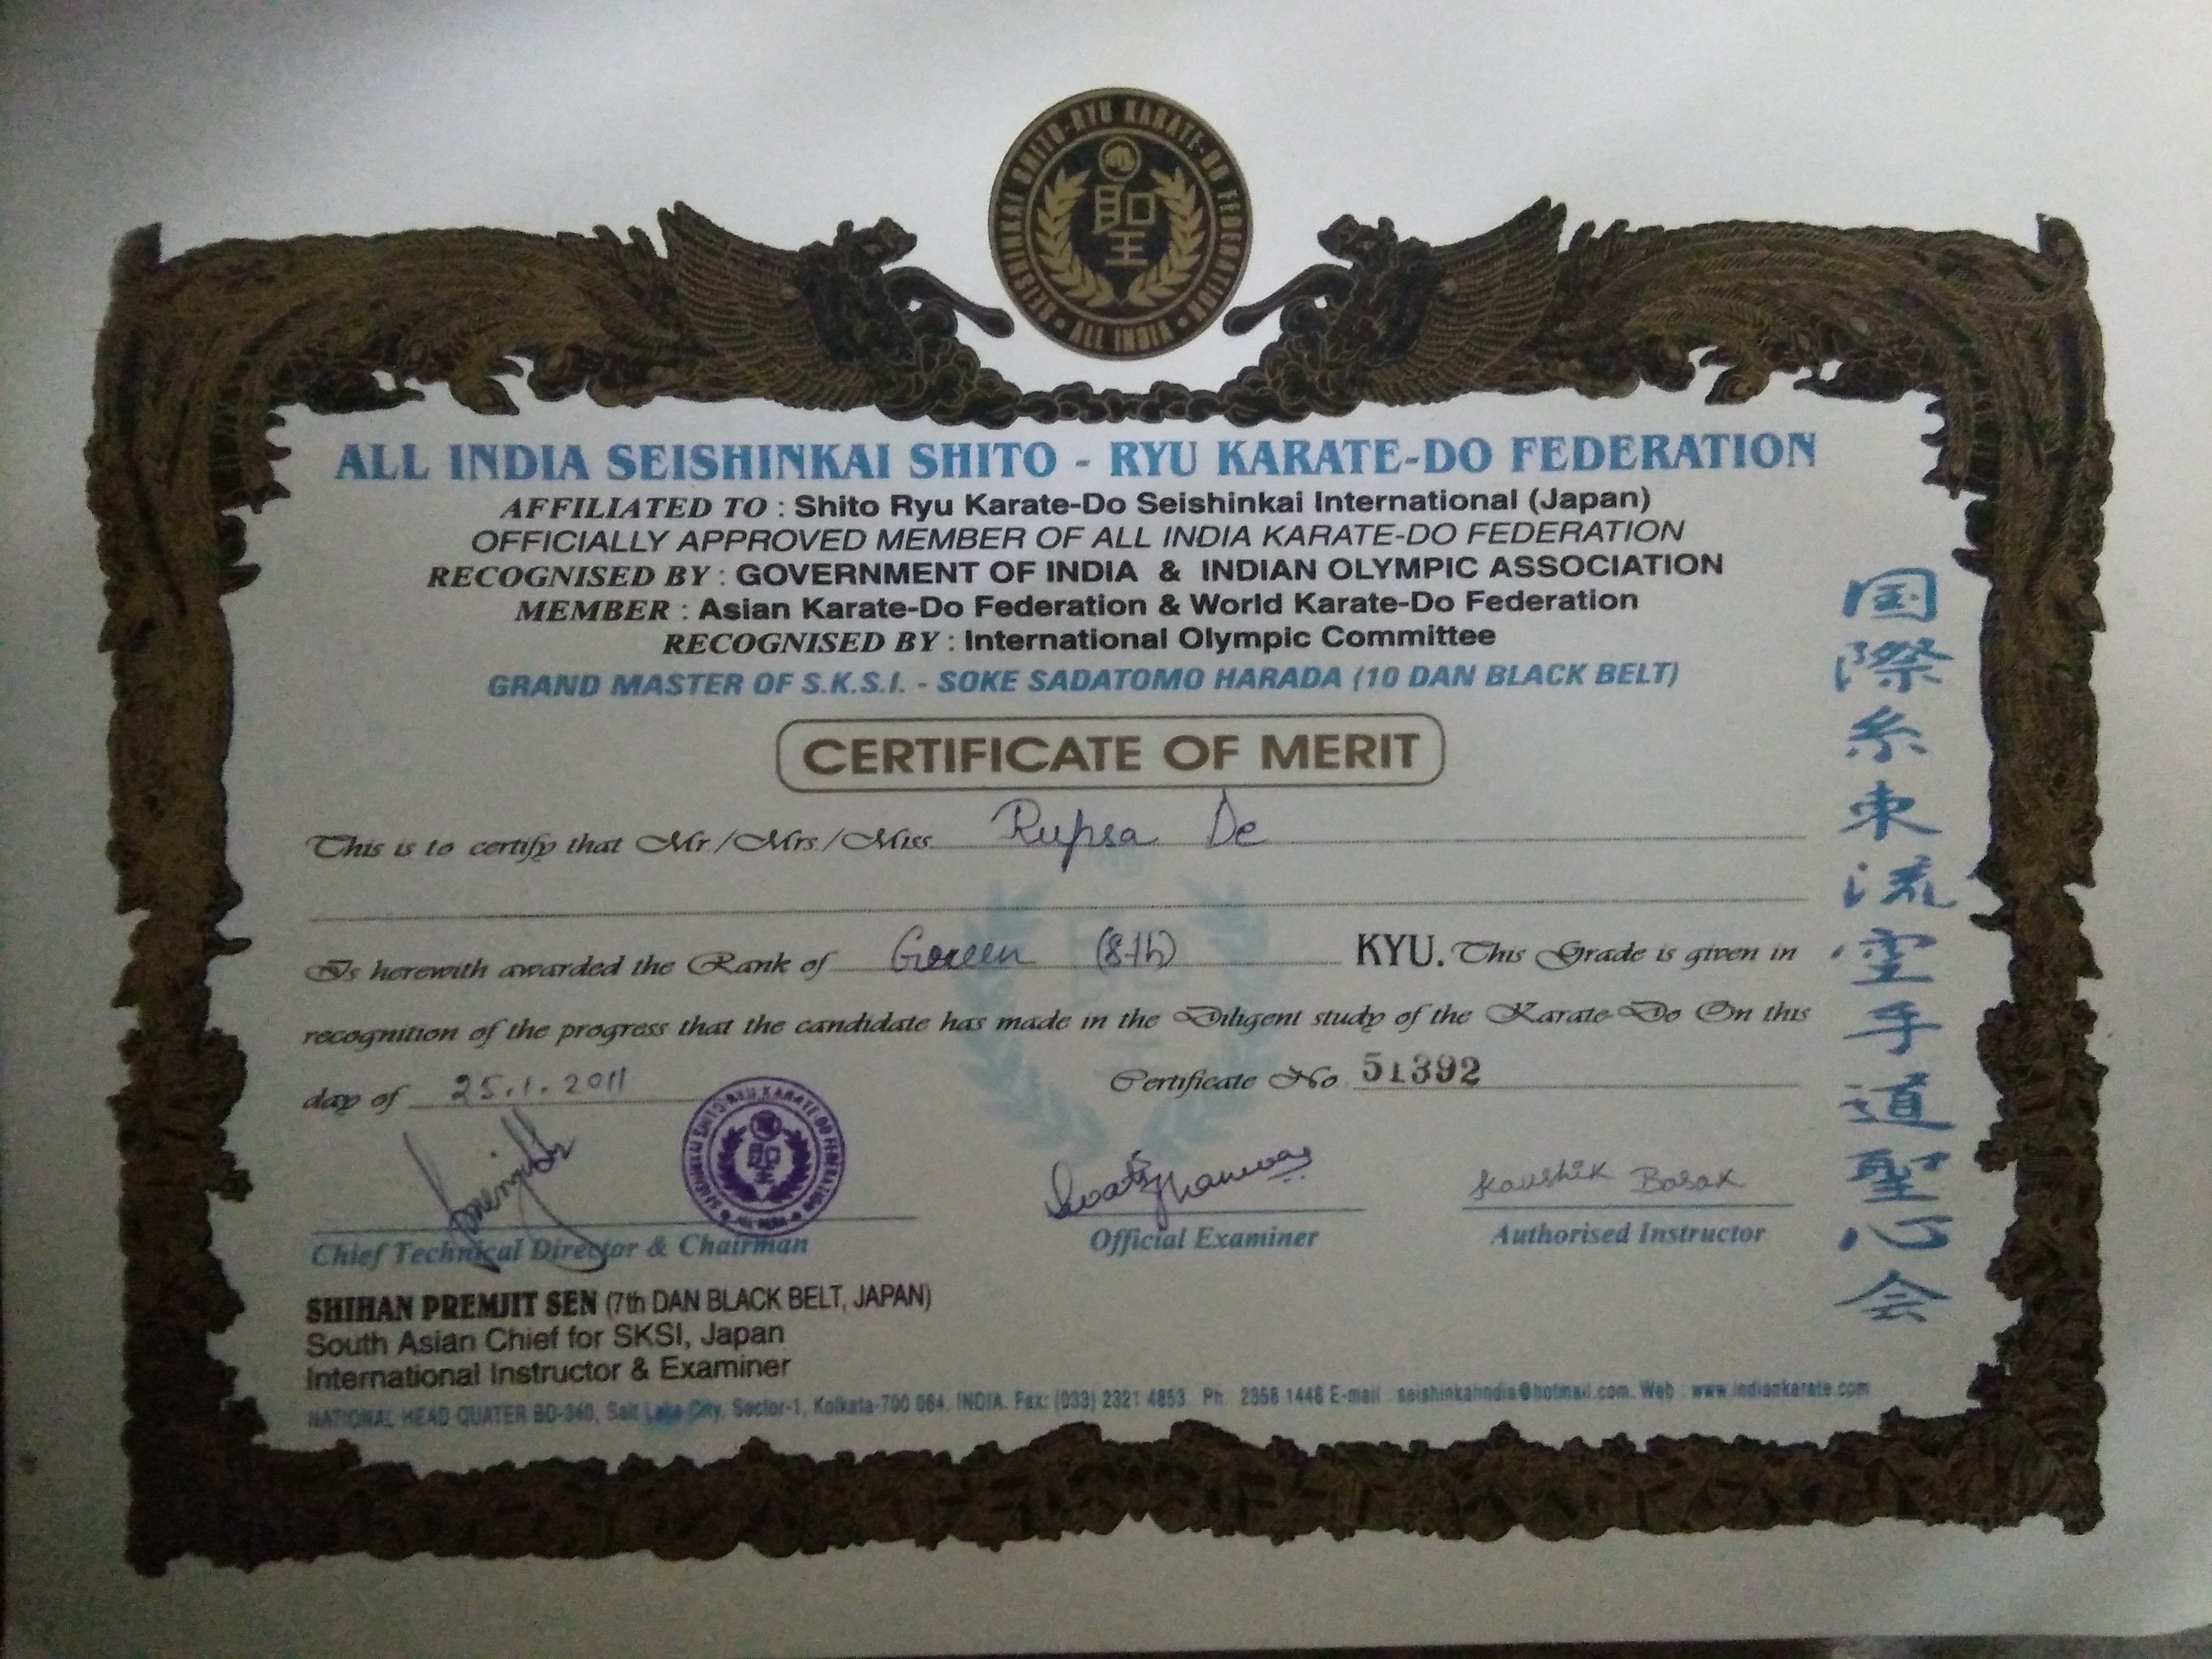 SEISHINKAI SHITO-RYU KARATE-DO FEDERATION
聖
• ALL INDIA •
ALL INDIA SEISHINKAI SHITO - RYU KARATE-DO FEDERATION
AFFILIATED TO : Shito Ryu Karate-Do Seishinkai International (Japan)
OFFICIALLY APPROVED MEMBER OF ALL INDIA KARATE-DO FEDERATION
RECOGNISED BY : GOVERNMENT OF INDIA & INDIAN OLYMPIC ASSOCIATION
MEMBER : Asian Karate-Do Federation & World Karate-Do Federation
RECOGNISED BY : International Olympic Committee
GRAND MASTER OF S.K.S.I. - SOKE SADATOMO HARADA (10 DAN BLACK BELT)
CERTIFICATE OF MERIT
This is to certify that Mr./Mrs./Miss Rupsa De
Is herewith awarded the Rank of Green (8th) KYU. This Grade is given in
recognition of the progress that the candidate has made in the Diligent study of the Karate-Do On this
day of 25.1.2011 Certificate No 51392
SEISHINKAI SHITO-RYU KARATE-DO FEDERATION
聖
ALL INDIA
Kaushik Basak
Chief Technical Director & Chairman Official Examiner Authorised Instructor
SHIHAN PREMJIT SEN (7th DAN BLACK BELT, JAPAN)
South Asian Chief for SKSI, Japan
International Instructor & Examiner
NATIONAL HEAD QUATER BD-340, Salt Lake City, Sector-1, Kolkata-700 064, INDIA. Fax: (033) 2321 4853 Ph : 2358 1446 E-mail : seishinkaiindia@hotmail.com. Web : www.indiankarate.com
国際糸東流空手道聖心会